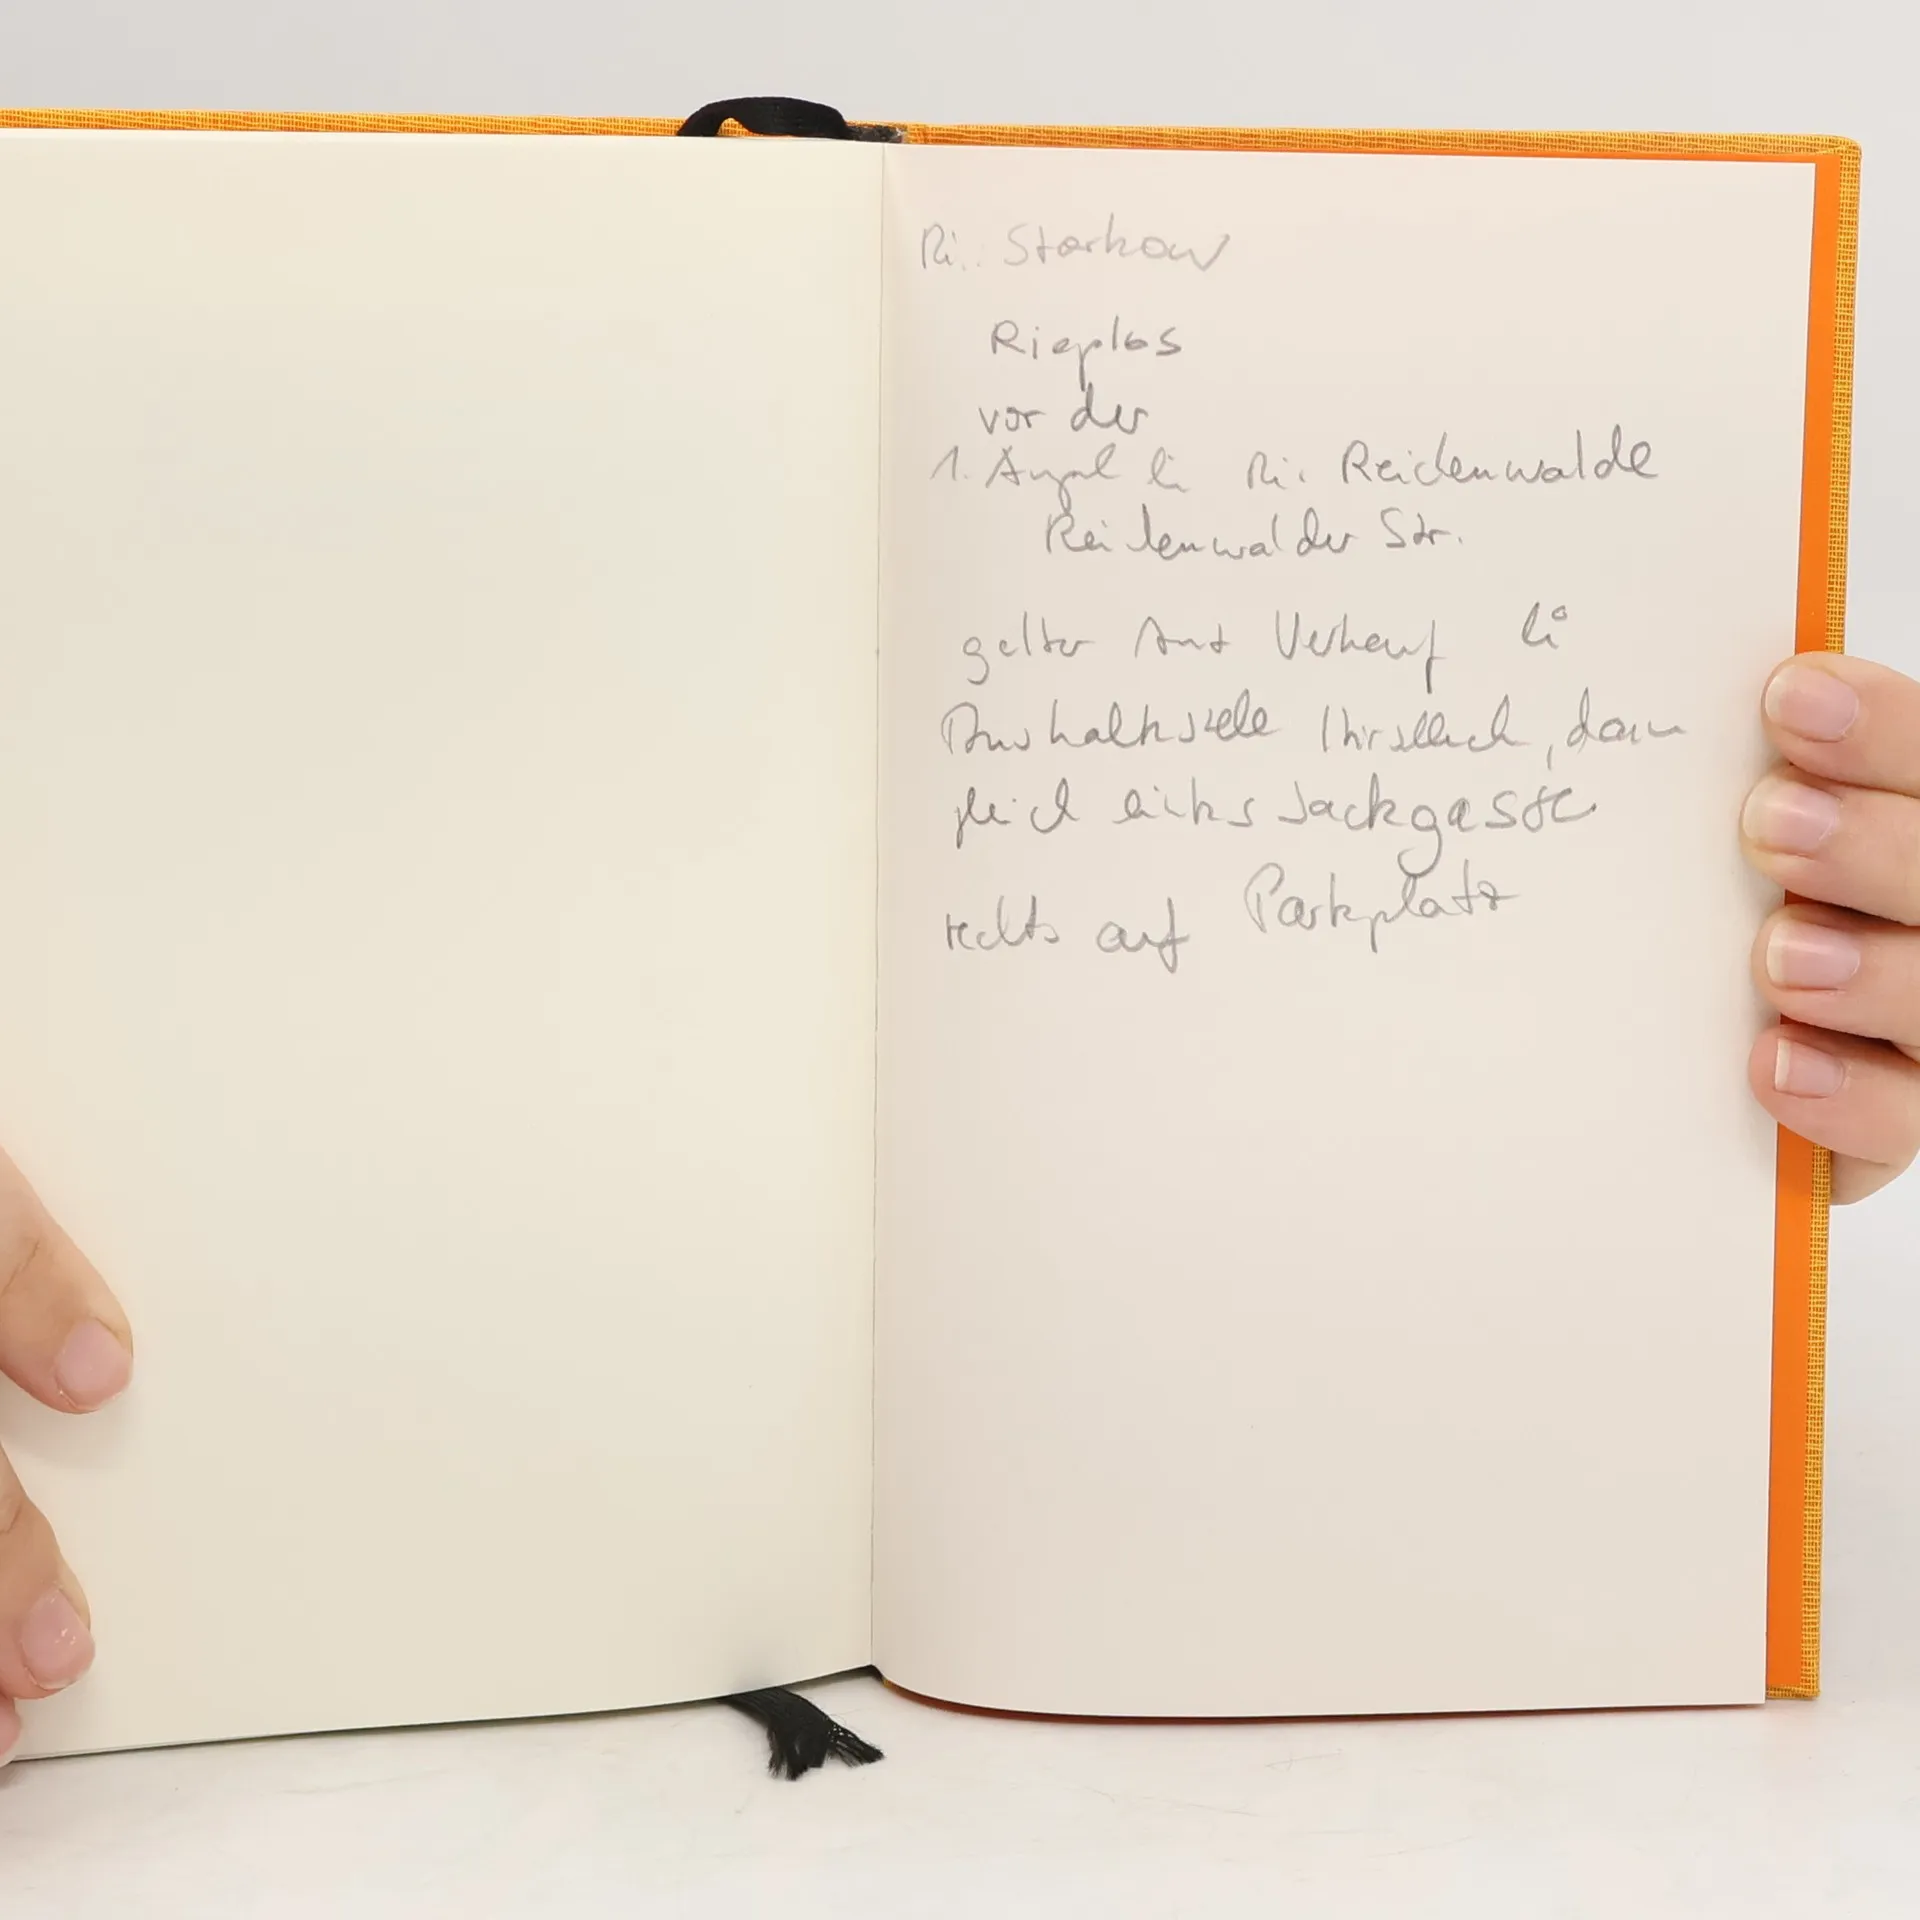 Ri.: Storkow
Rieplos
vor der
1. Ampel li Ri. Reichenwalde
Reichenwalder Str.
gelber Verkauf li
dann
gleich links Sackgasse
rechts auf Parkplatz